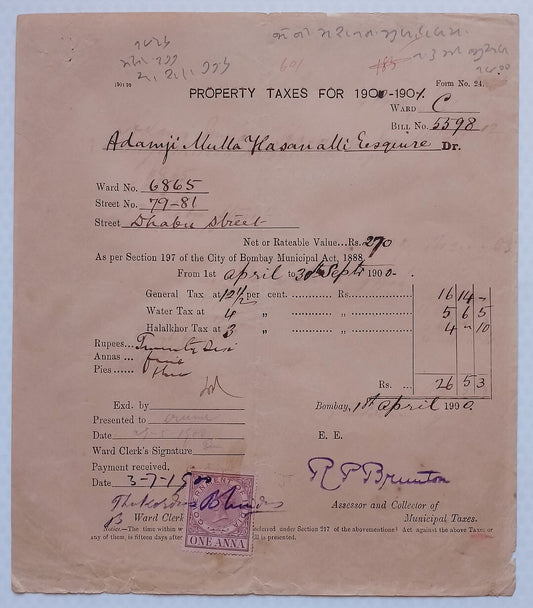 190199
Form No. 24.
PROPERTY TAXES FOR 1900-1901.
WARD C
BILL No. 5598
Adamji Mulla Hasanalli Esquire Dr.
Ward No. 6865
Street No. 79-81
Street Dhabu Street
Net or Rateable Value...Rs. 270
As per Section 197 of the City of Bombay Municipal Act, 1888
From 1st april to 30th Septr 1900.
General Tax at 12½ per cent. ............ Rs............ 16 14 -
Water Tax at 4 „ ............ „ ............ 5 6 5
Halalkhor Tax at 3 „ ............ „ ............ 4 - 10
Rupees... Twenty Six
Annas ... five
Pies ...... three
Rs. ... 26 5 3
Exd. by
Bombay, 1st April 1900.
Presented to
Date
E. E.
Ward Clerk's Signature
Payment received,
Date 3-7-1900
R P Brunton
Assessor and Collector of
Municipal Taxes.
Ward Clerk
ONE ANNA
Notice.—The time within w
ferred under Section 217 of the abovementioned Act against the above Taxes or
any of them, is fifteen days after
ll is presented.
601
185